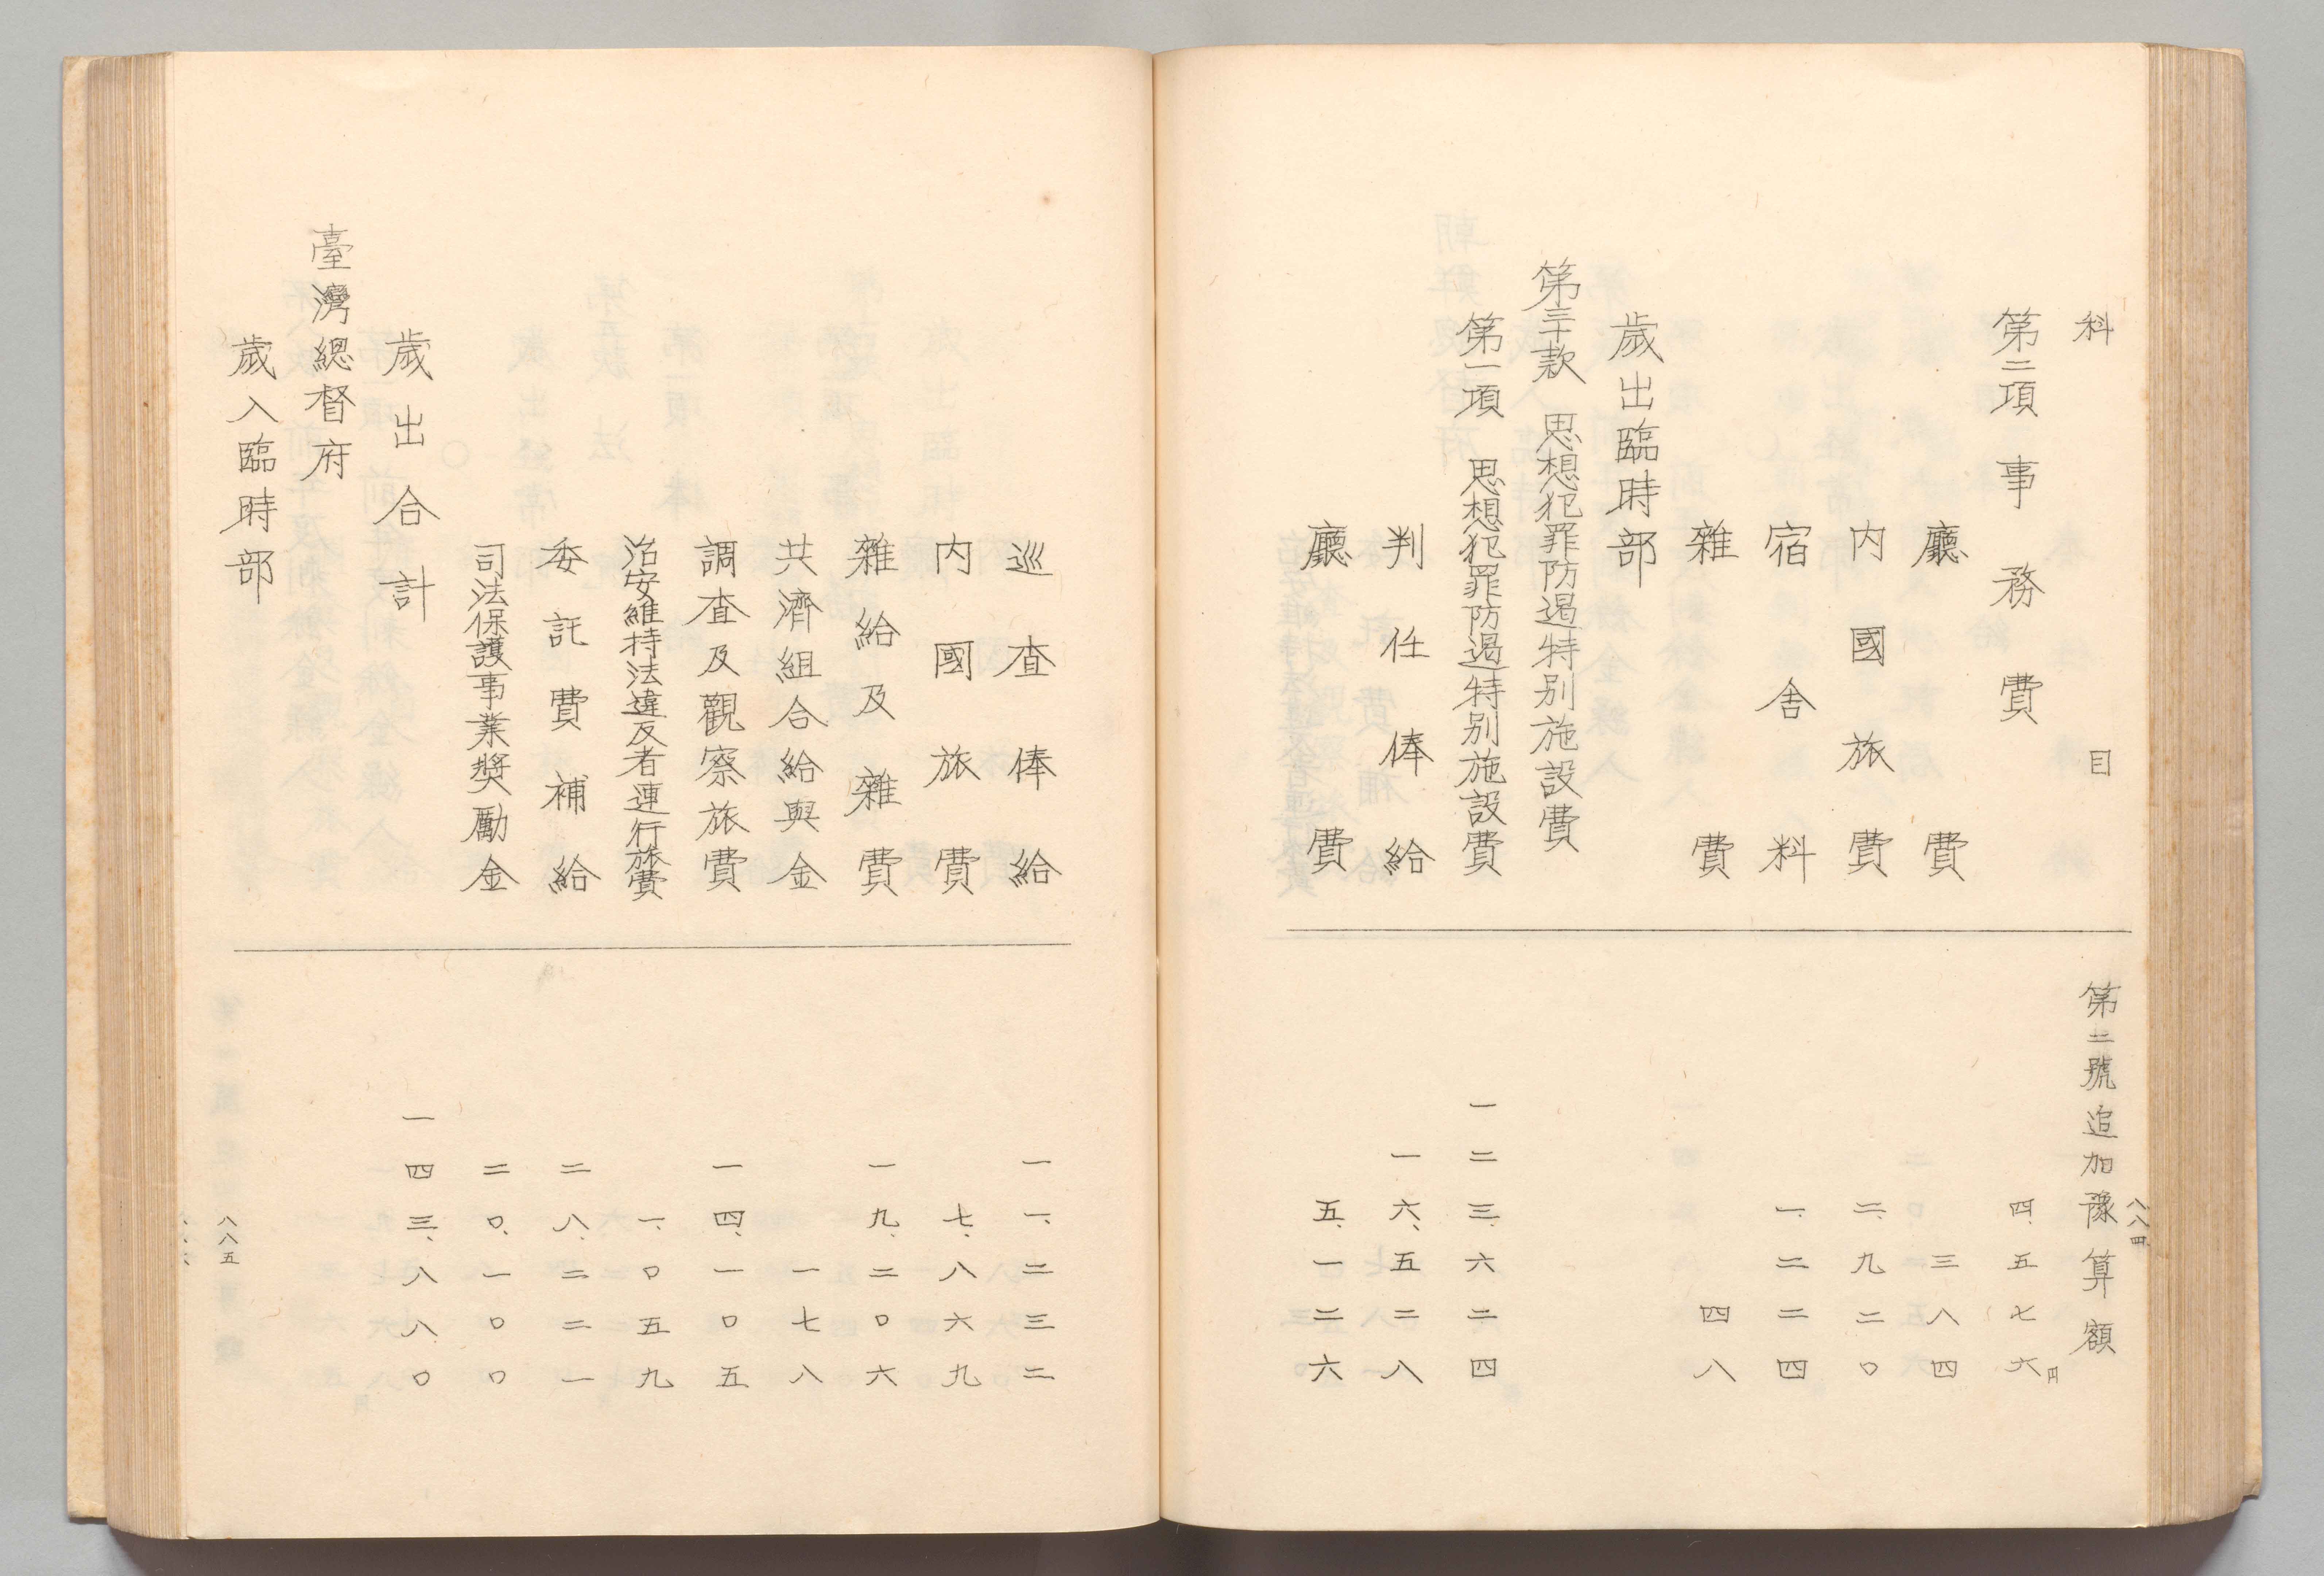 八八四
科目　第二號追加豫算額
第二項　事務費　四、五七六円
廳費　三八四
内國旅費　二、九二〇
宿舎料　一、二二四
雜費　四八
歳出臨時部
第三十款　思想犯罪防遏特別施設費
第一項　思想犯罪防遏特別施設費　一二三、六二四
判任俸給　一六、五二八
廳費　五、一二六
巡査俸給　一一、二三二
内國旅費　七、八六九
雜給及雜費　一九、二〇六
共濟組合給與金　一七八
調査及觀察旅費　一四、一〇五
治安維持法違反者連行旅費　一、〇五九
委託費補給　二八、二二一
司法保護事業獎勵金　二〇、一〇〇
歳出合計　一四三、八八〇
臺灣總督府
歳入臨時部
八八五